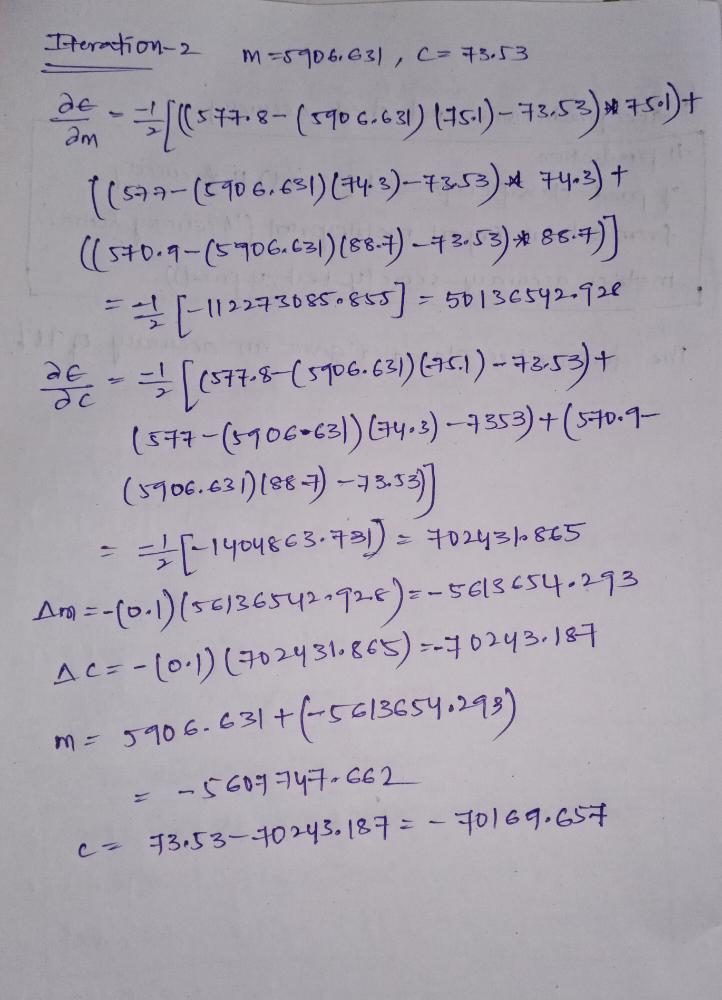 Iteration-2 m=5906.631, c= 73.53
∂E/∂m = -1/2 [((577.8-(5906.631)(75.1)-73.53)*75.1)+
((577-(5906.631)(74.3)-73.53)* 74.3)+
((570.9-(5906.631)(88.7)-73.53)*88.7)]
= -1/2 [-112273085.855] = 50136542.928
∂E/∂c = -1/2 [(577.8-(5906.631)(75.1)-73.53)+
(577-(5906.631)(74.3)-7353)+(570.9-
(5906.631)(88.7)-73.53)]
= -1/2 [-1404863.731) = 702431.865
Δm=-(0.1)(56136542.928)=-5613654.293
ΔC= -(0.1)(702431.865)=-70243.187
m= 5906.631+(-5613654.293)
= -5607747.662
c= 73.53-70243.187= -70169.657